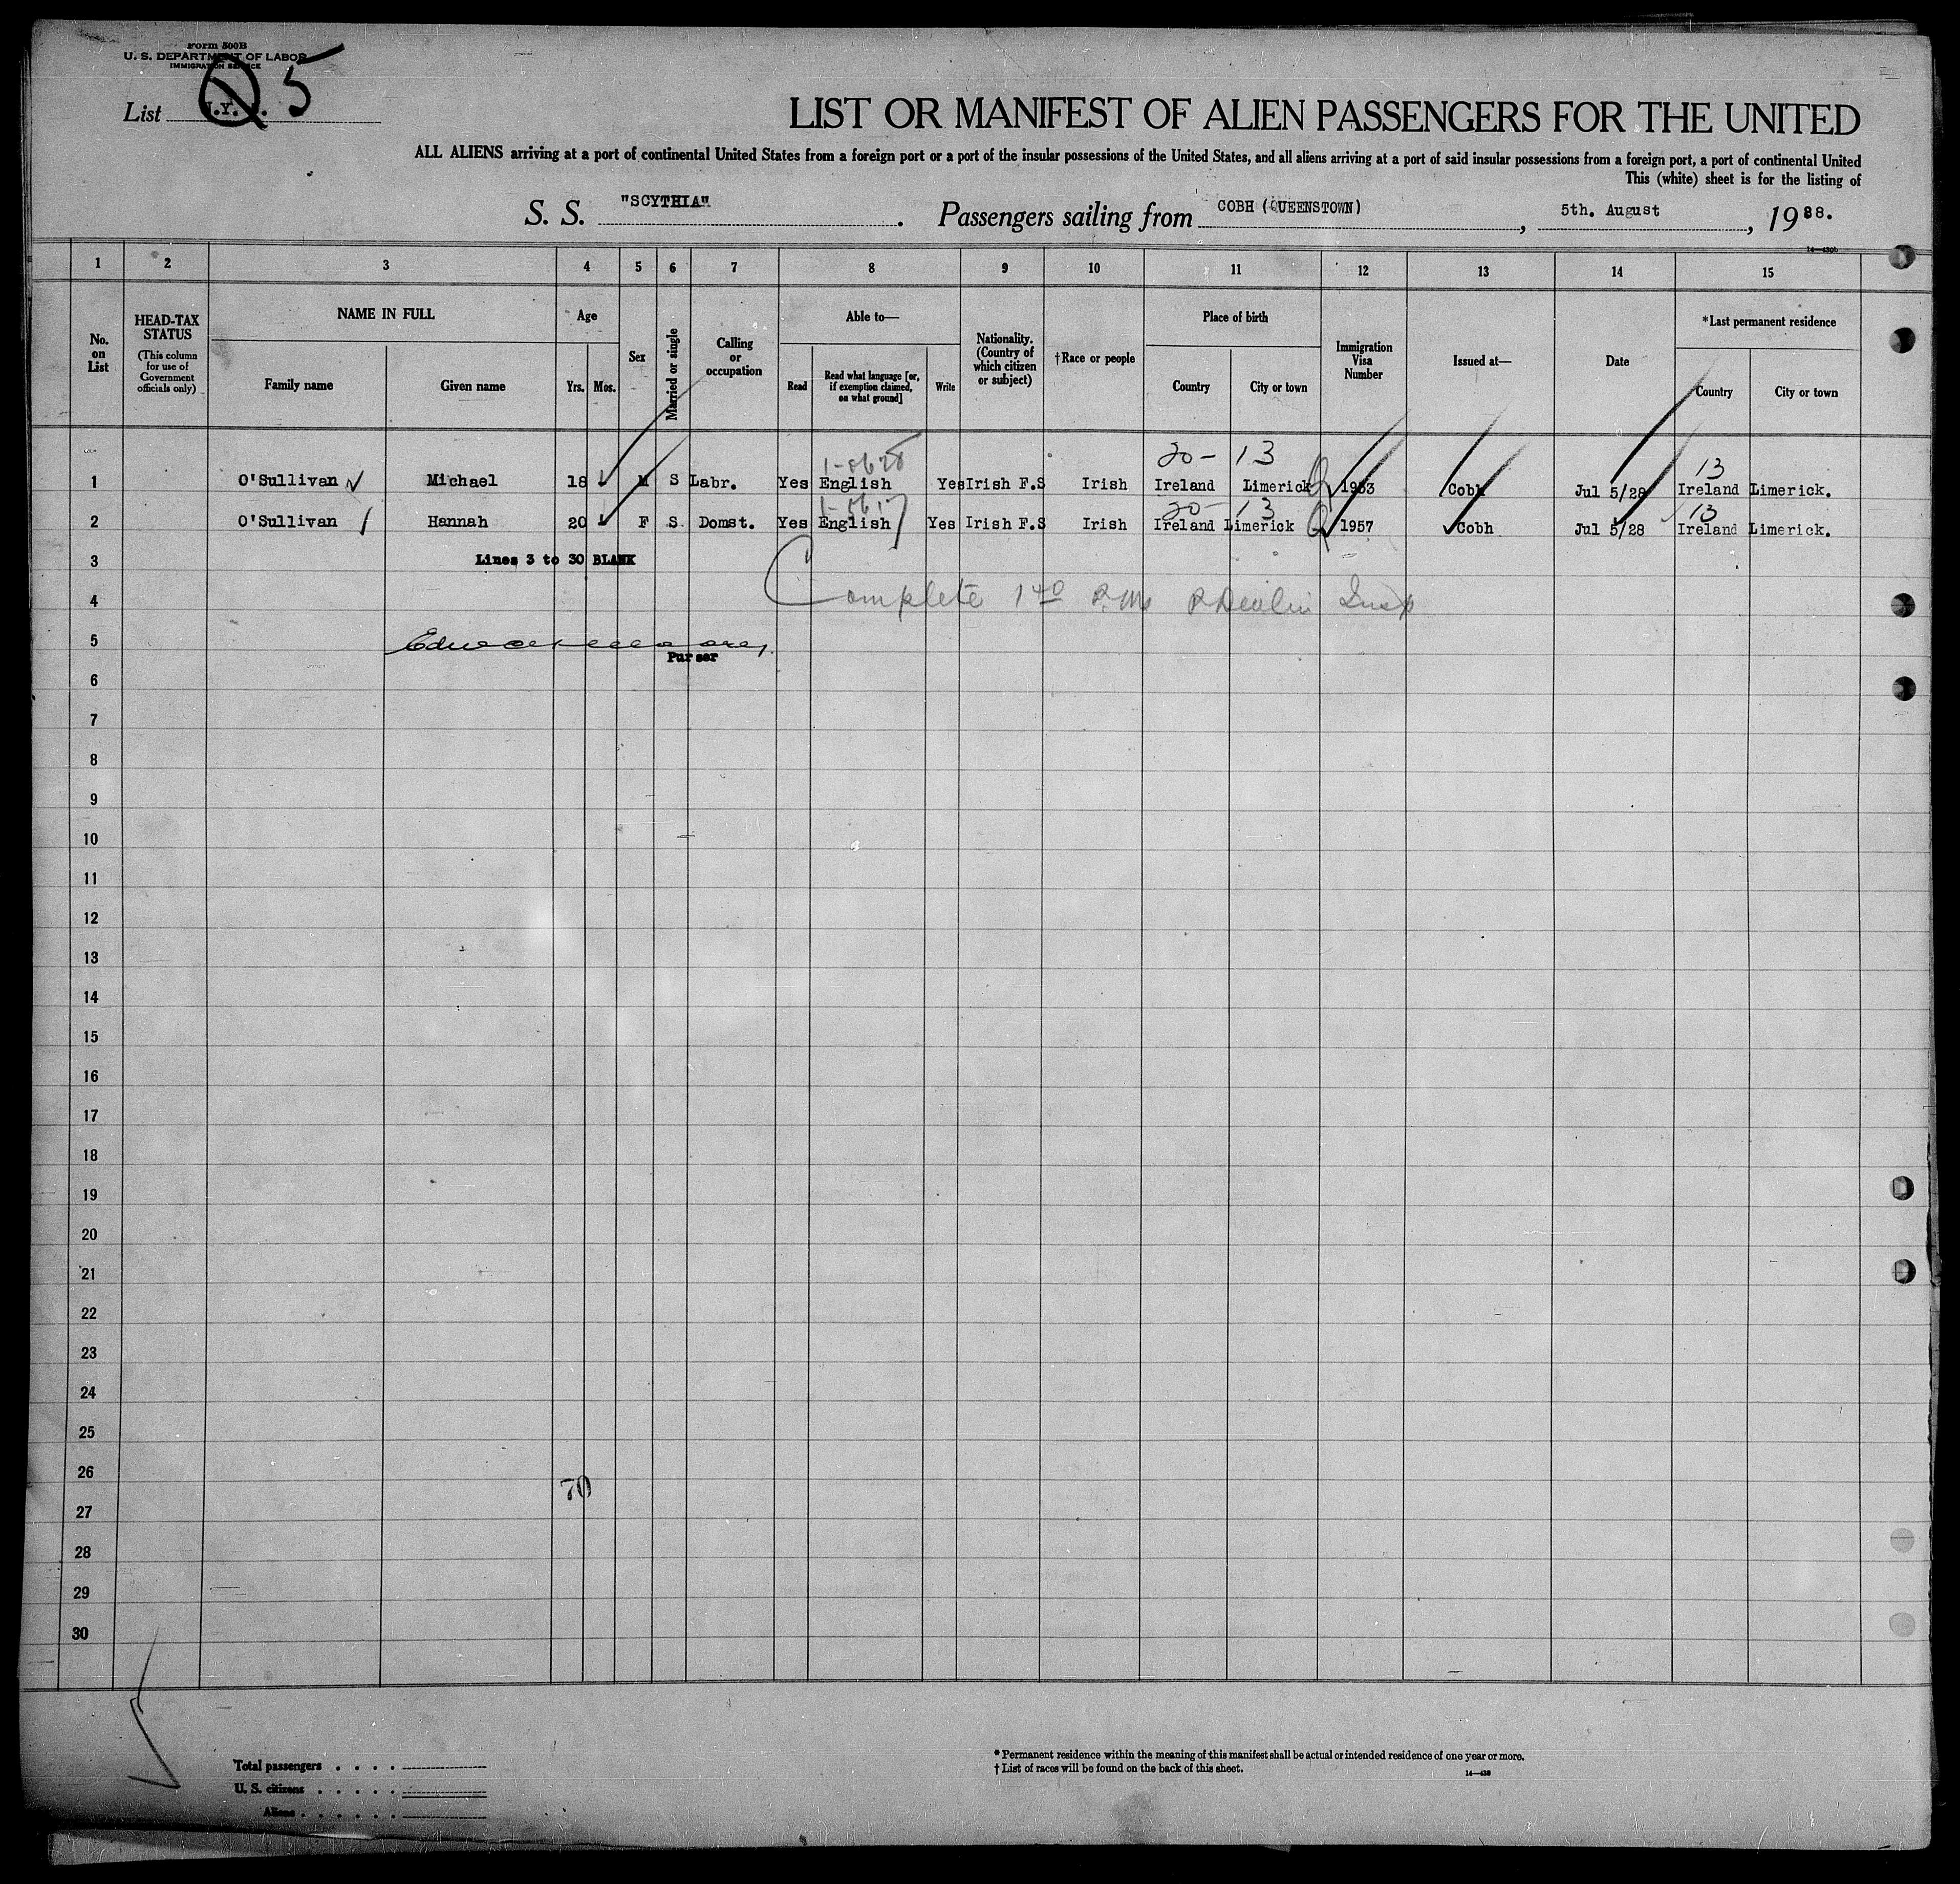 Form 500B
U. S. DEPARTMENT OF LABOR
IMMIGRATION SERVICE
List N.Y. 5
LIST OR MANIFEST OF ALIEN PASSENGERS FOR THE UNITED
ALL ALIENS arriving at a port of continental United States from a foreign port or a port of the insular possessions of the United States, and all aliens arriving at a port of said insular possessions from a foreign port, a port of continental United
This (white) sheet is for the listing of
S. S. "SCYTHIA". Passengers sailing from COBH (QUEENSTOWN), 5th. August, 1928.
1 2 3 4 5 6 7 8 9 10 11 12 13 14 15
No. on List
HEAD-TAX STATUS
(This column for use of Government officials only)
NAME IN FULL
Family name
Given name
Age
Yrs.
Mos.
Sex
Married or single
Calling or occupation
Able to—
Read
Read what language [or, if exemption claimed, on what ground]
Write
Nationality. (Country of which citizen or subject)
†Race or people
Place of birth
Country
City or town
Immigration Visa Number
Issued at—
Date
*Last permanent residence
Country
City or town
20- 13 13
1 O'Sullivan Michael 18 M S Labr. Yes English Yes Irish F.S Irish Ireland Limerick 1953 Cobh Jul 5/28 Ireland Limerick.
20- 13 13
2 O'Sullivan Hannah 20 F S Domst. Yes English Yes Irish F.S Irish Ireland Limerick 1957 Cobh Jul 5/28 Ireland Limerick.
3 Lines 3 to 30 BLANK
4 Complete 1 40 P.M. Insp
5
Purser
6
7
8
9
10
11
12
13
14
15
16
17
18
19
20
21
22
23
24
25
26
70
27
28
29
30
Total passengers . . . .
U. S. citizens . . . . .
Aliens . . . . . .
* Permanent residence within the meaning of this manifest shall be actual or intended residence of one year or more.
† List of races will be found on the back of this sheet.